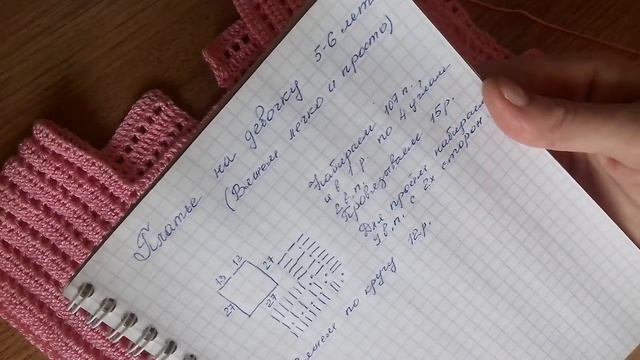 Платье на девочку 5-6 лет
(Вяжем легко и просто)
Набираем 107 п.,
и в 1 р. по 4 углам
2 в.п.
Провязываем 15 р.
Для проймы набираем
9 в.п. с 2х сторон
Вяжем по кругу 12 р.
13 13
27 27 27